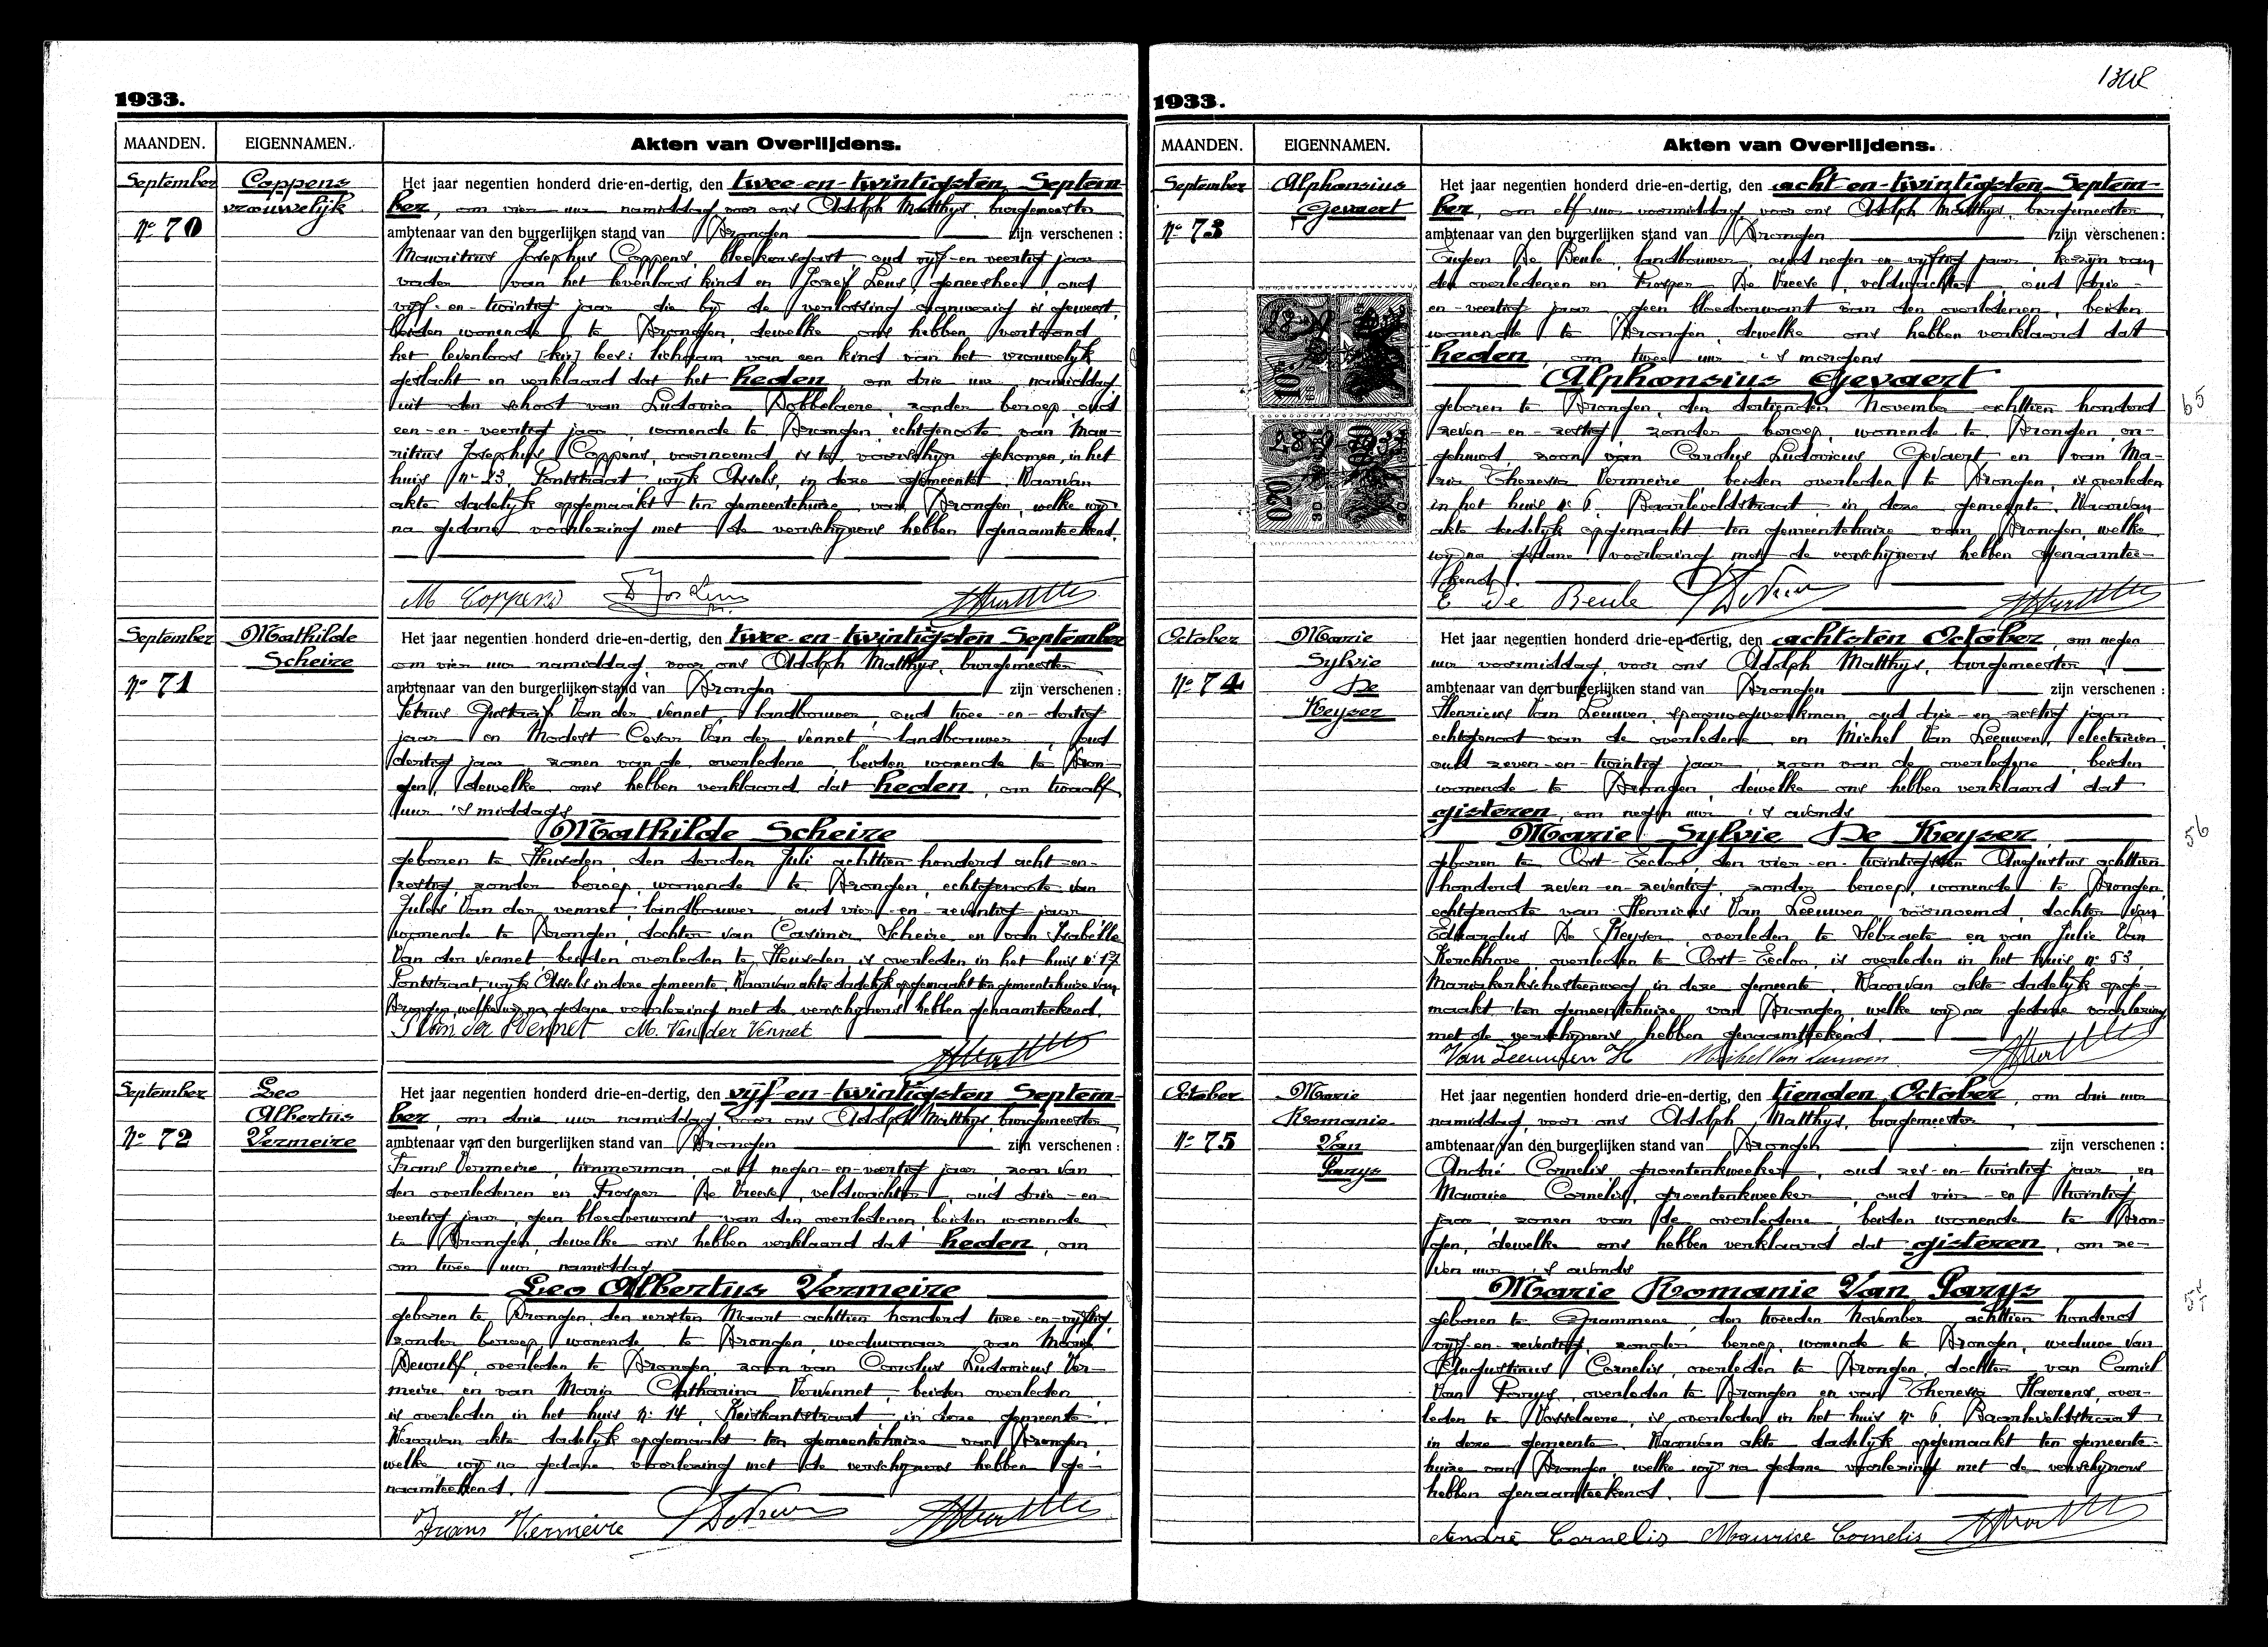 1933.
MAANDEN. EIGENNAMEN. Akten van Overlijdens.
September
Nº 70
Coppens
vrouwelijk
Het jaar negentien honderd drie-en-dertig, den twee-en-twintigsten Septem-
ber, om vier uur namiddag voor ons Adolph Matthys, burgemeester
ambtenaar van den burgerlijken stand van Drongen zijn verschenen:
Mauritius Josephus Coppens, bleekersgast, oud vijf-en-veertig jaar
vader van het levenloos kind en Jozef Lens, geneesheer, oud
vijf-en-twintig jaar die bij de verlossing aanwezig is geweest,
beiden wonende te Drongen, dewelke ons hebben vertoond
het levenloos lichaam van een kind van het vrouwelijk
geslacht en verklaard dat het heden, om drie uur namiddag
uit den schoot van Ludovica Dobbelaere, zonder beroep, oud
een-en-veertig jaar, wonende te Drongen, echtgenoote van Mau-
ritius Josephus Coppens, voornoemd, is te voorschijn gekomen, in het
huis nr 23, Pontstraat, wijk Assels, in deze gemeente. Waarvan
akte dadelijk opgemaakt ten gemeentehuize van Drongen, welke wij
na gedane voorlezing met de verschijners hebben genaamteekend.
M Coppens
September
Nº 71
Mathilde
Scheire
Het jaar negentien honderd drie-en-dertig, den twee-en-twintigsten September
om vier uur namiddag, voor ons Adolph Matthys, burgemeester
ambtenaar van den burgerlijken stand van Drongen zijn verschenen:
Petrus Gustaaf Van der Vennet, landbouwer, oud twee-en-dertig
jaar en Modest Cesar Van der Vennet, landbouwer, oud
dertig jaar, zonen van de overledene, beiden wonende te Dron-
gen, dewelke ons hebben verklaard dat heden, om twaalf
uur 's middags
Mathilde Scheire
geboren te Heusden, den derden Juli achttien honderd acht-en-
zestig, zonder beroep, wonende te Drongen, echtgenoote van
Jules Van der Vennet, landbouwer, oud vier-en-zeventig jaar
wonende te Drongen, dochter van Casimir Scheire en van Isabelle
Van der Vennet, beiden overleden te Heusden, is overleden in het huis nr 17
Pontstraat, wijk Assels in deze gemeente. Waarvan akte dadelijk opgemaakt ten gemeentehuize van
Drongen, welke wij na gedane voorlezing met de verschijners hebben genaamteekend.
Van der Vennet M. Van der Vennet
September
Nº 72
Leo
Albertus
Vermeire
Het jaar negentien honderd drie-en-dertig, den vijf-en-twintigsten Septem-
ber, om drie uur namiddag, voor ons Adolph Matthys, burgemeester
ambtenaar van den burgerlijken stand van Drongen zijn verschenen:
Frans Vermeire, timmerman, oud negen-en-veertig jaar, zoon van
den overledenen en Prosper De Vreese, veldwachter, oud drie-en-
veertig jaar, geen bloedverwant van den overledenen, beiden wonende
te Drongen, dewelke ons hebben verklaard dat heden, om
om twee uur namiddag
Leo Albertus Vermeire
geboren te Drongen, den eersten Maart achttien honderd twee-en-vijftig,
zonder beroep, wonende te Drongen, weduwnaar van Marie
Dewulf, overleden te Drongen, zoon van Carolus Ludovicus Ver-
meire en van Maria Catharina Vervennet, beiden overleden
is overleden in het huis nr 14, Keiskantstraat in deze gemeente.
Waarvan akte dadelijk opgemaakt ten gemeentehuize van Drongen,
welke wij na gedane voorlezing met de verschijners hebben ge-
naamteekend.
Frans Vermeire
1933.
MAANDEN. EIGENNAMEN. Akten van Overlijdens.
September
Nº 73
Alphonsius
Gevaert
Het jaar negentien honderd drie-en-dertig, den acht-en-twintigsten Septem-
ber, om elf uur voormiddag, voor ons Adolph Matthys, burgemeester
ambtenaar van den burgerlijken stand van Drongen zijn verschenen:
Eugeen De Beule, landbouwer, oud negen-en-vijftig jaar, kozijn van
den overledenen en Prosper De Vreese, veldwachter, oud drie-
en-veertig jaar, geen bloedverwant van den overledenen, beiden
wonende te Drongen, dewelke ons hebben verklaard dat
heden, om twee uur 's morgens
Alphonsius Gevaert
geboren te Drongen, den dertienden November achttien honderd
zeven-en-zestig, zonder beroep, wonende te Drongen, on-
gehuwd, zoon van Carolus Ludovicus Gevaert en van Ma-
ria Theresia Vermeire, beiden overleden te Drongen, is overleden
in het huis nr 6, Baarleveldstraat in deze gemeente. Waarvan
akte dadelijk opgemaakt ten gemeentehuize van Drongen, welke
wij na gedane voorlezing met de verschijners hebben genaamtee-
kend.
E De Beule
65
October
Nº 74
Marie
Sylvie
De
Keyser
Het jaar negentien honderd drie-en-dertig, den achtsten October, om negen
uur voormiddag, voor ons Adolph Matthys, burgemeester
ambtenaar van den burgerlijken stand van Drongen zijn verschenen:
Henricus Van Leeuwen, spoorwegwerkman, oud drie-en-zestig jaar
echtgenoot van de overledene en Michel Van Leeuwen, electricien,
oud zeven-en-twintig jaar, zoon van de overledene, beiden
wonende te Drongen, dewelke ons hebben verklaard dat
gisteren, om negen uur 's avonds
Marie Sylvie De Keyser
geboren te Oost-Eecloo, den vier-en-twintigsten Augustus achttien
honderd zeven-en-zeventig, zonder beroep, wonende te Drongen,
echtgenoote van Henricus Van Leeuwen, voornoemd, dochter van
Eduardus De Keyser, overleden te Selzaete en van Julie Van
Kerckhove, overleden te Oost-Eecloo, is overleden in het huis nr 53,
Mariakerkschesteenweg in deze gemeente. Waarvan akte dadelijk opge-
maakt ten gemeentehuize van Drongen, welke wij na gedane voorlezing
met de verschijners hebben genaamteekend.
Van Leeuwen H Michel Van Leeuwen
56
October
Nº 75
Marie
Romanie
Van
Parys
Het jaar negentien honderd drie-en-dertig, den tienden October, om drie uur
namiddag, voor ons Adolph Matthys, burgemeester
ambtenaar van den burgerlijken stand van Drongen zijn verschenen:
André Cornelis, groentenkweeker, oud zes-en-twintig jaar, en
Maurice Cornelis, groentenkweeker, oud vier-en-twintig
jaar, zonen van de overledene, beiden wonende te Dron-
gen, dewelke ons hebben verklaard dat gisteren, om ze-
ven uur 's avonds
Marie Romanie Van Parys
geboren te Grammene, den tweeden November achttien honderd
vijf-en-zeventig, zonder beroep, wonende te Drongen, weduwe van
Augustinus Cornelis, overleden te Drongen, dochter van Camiel
Van Parys, overleden te Drongen en van Theresia Haerens, over-
leden te Vosselaere, is overleden in het huis nr 6, Baarleveldstraat
in deze gemeente. Waarvan akte dadelijk opgemaakt ten gemeente-
huize van Drongen, welke wij na gedane voorlezing met de verschijners
hebben genaamteekend.
André Cornelis Maurice Cornelis